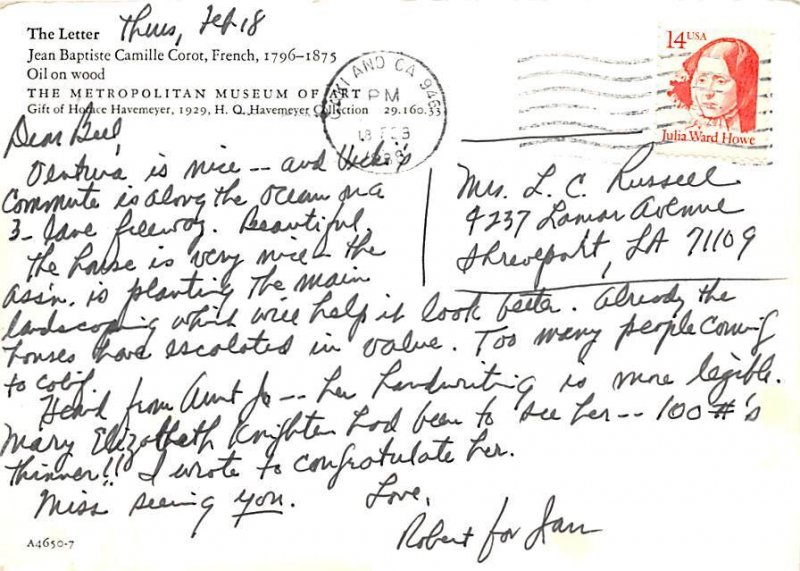 The Letter Thurs, Feb 18
Jean Baptiste Camille Corot, French, 1796–1875
Oil on wood
THE METROPOLITAN MUSEUM OF ART
Gift of Horace Havemeyer, 1929, H. O. Havemeyer Collection 29.160.33
LAND CA 946
PM
18 FEB
14 USA
Julia Ward Howe
Dear Bee,
Ventura is nice -- and Vicki's
commute is along the ocean on a
3-lane freeway. Beautiful,
the house is very nice - the
ass'n. is planting the main
landscaping which will help it look better. Already the
houses have escalated in value. Too many people coming
to Calif.
Heard from Aunt Jo -- her handwriting is more legible.
Mary Elizabeth Knighten had been to see her -- 100 #'s
thinner!! I wrote to congratulate her.
Miss seeing you. Love,
Robert for Jan
Mrs. L. C. Russell
4237 Lamar Avenue
Shreveport, LA 71109
A4650-7